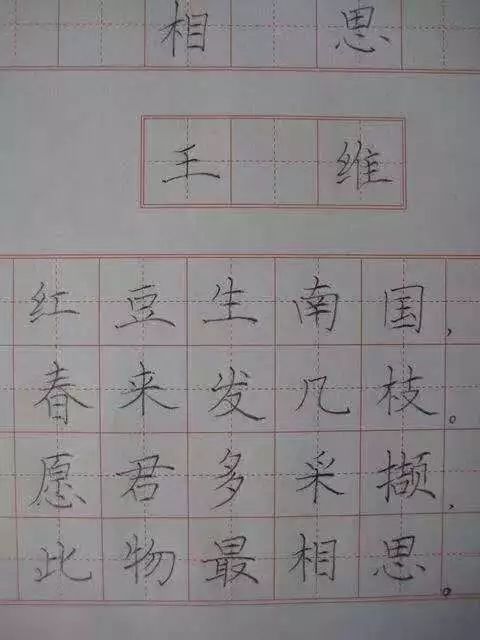 相思
王维
红豆生南国,
春来发几枝。
愿君多采撷,
此物最相思。